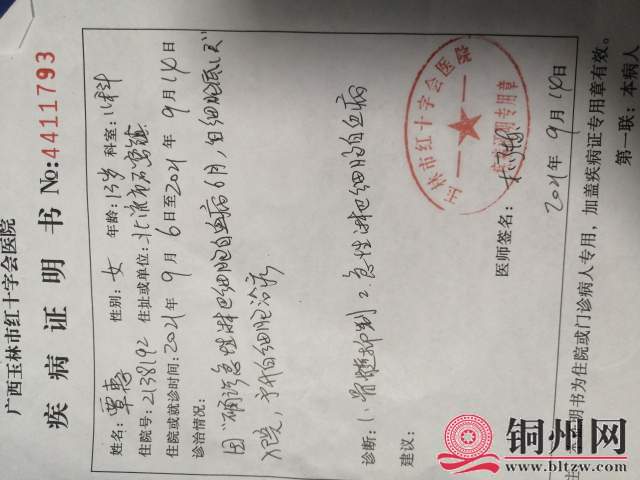 广西玉林市红十字会医院
疾病证明书 No:4411793
姓名:覃 性别:女 年龄:13岁 科室:儿科
住院号:2138192 住址或单位:北流市石窝镇
住院或就诊时间:2021年9月6日至2021年9月14日
诊治情况:
因"确诊急性淋巴细胞白血病6月,白细胞低
入院,升白细胞治疗
诊断:1.骨髓抑制 2.急性淋巴细胞白血病
建议:
玉林市红十字会医院
疾病证明专用章
医师签名:
2021年9月14日
明书为住院或门诊病人专用,加盖疾病证专用章有效。
第一联:本病人
铜州网
www.bltzw.com